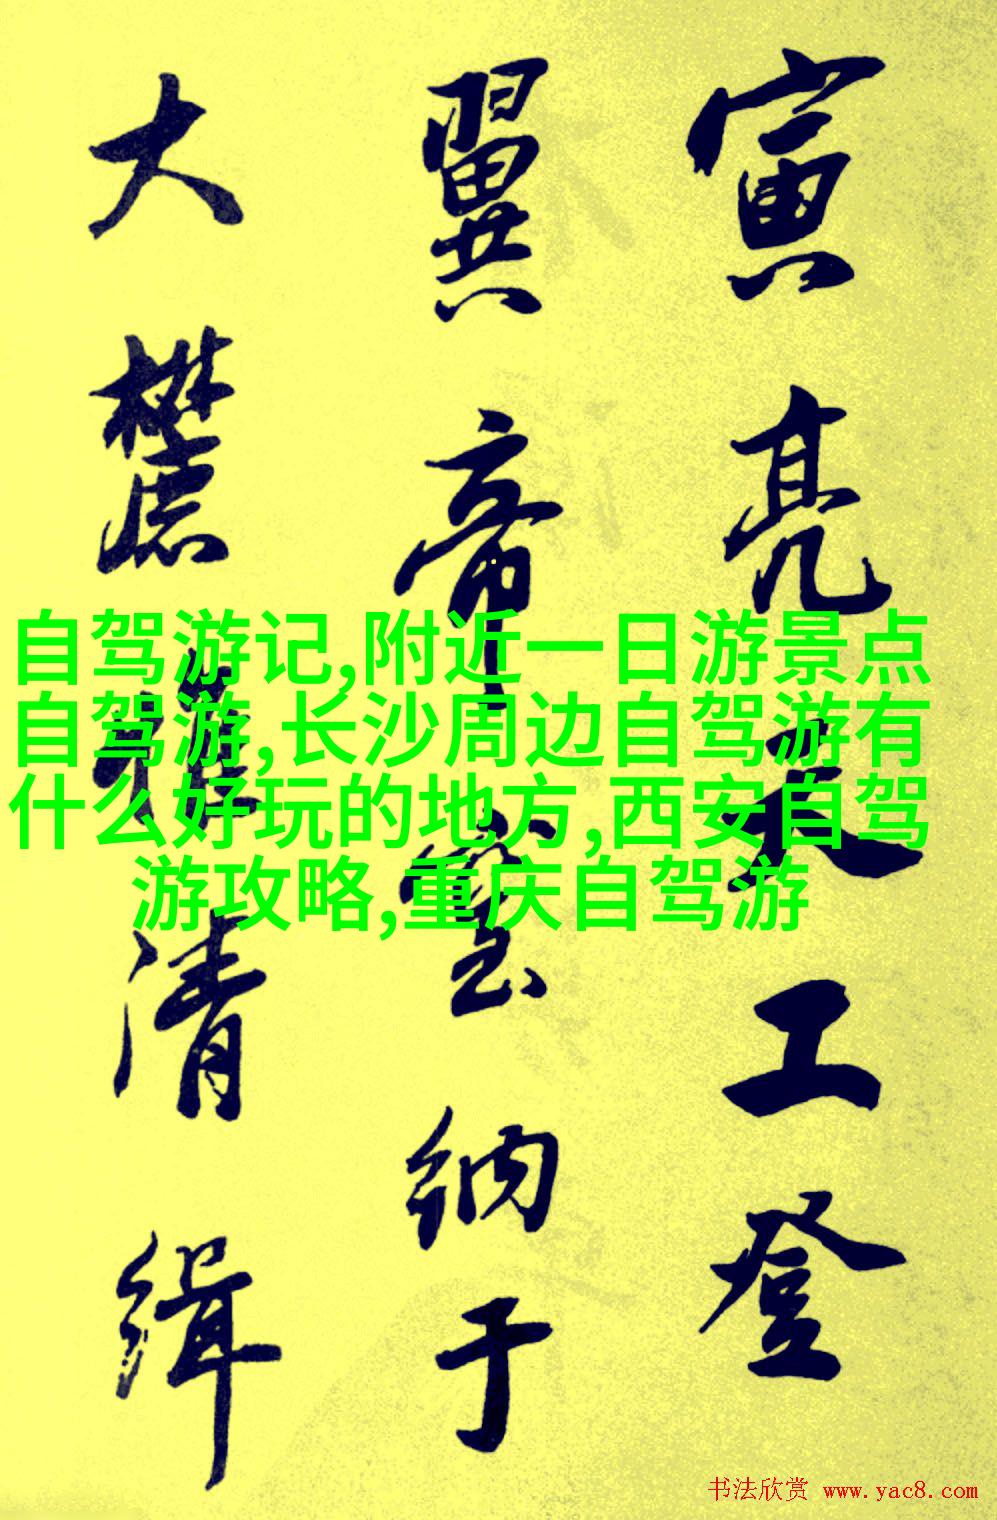 寅亮天工登
翼帝室纳于
大麓雅清缉
自驾游记,附近一日游景点
自驾游,长沙周边自驾游有
什么好玩的地方,西安自驾
游攻略,重庆自驾游
书法欣赏 www.yac8.com